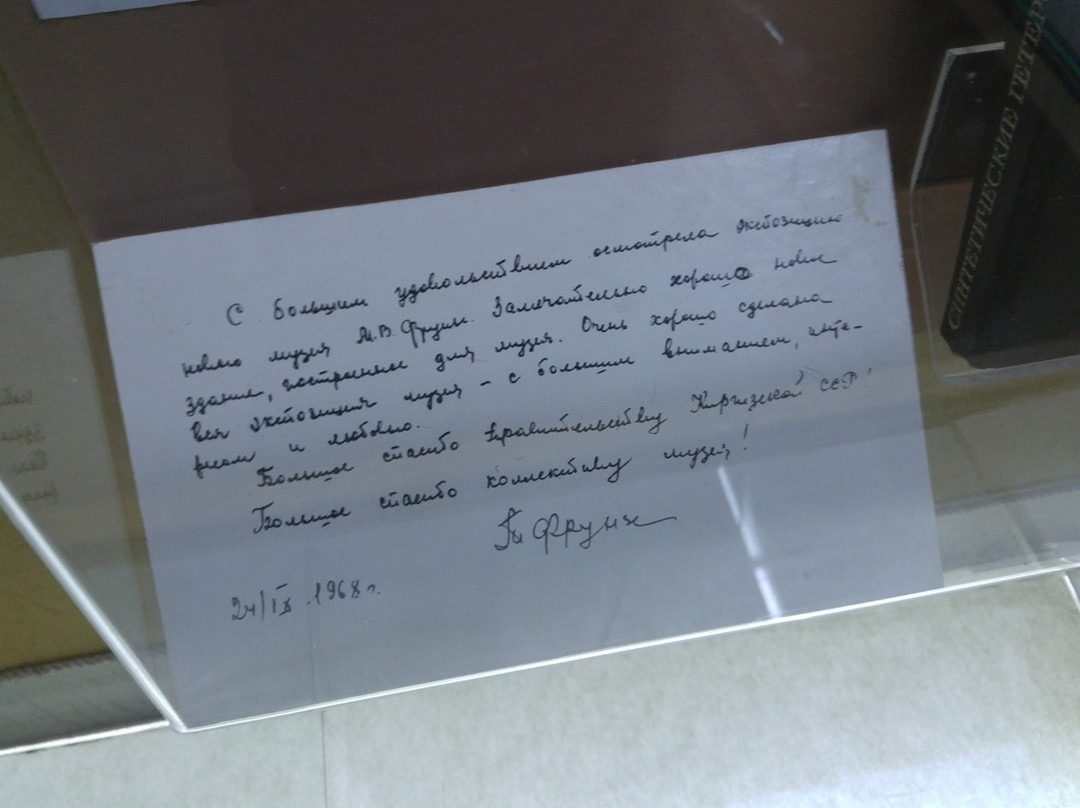 С большим удовольствием осмотрела экспозицию
нового музея М.В. Фрунзе. Замечательно хорошо новое
здание, построенное для музея. Очень хорошо сделана
вся экспозиция музея – с большим вниманием, инте-
ресом и любовью.
Большое спасибо правительству Киргизской ССР!
Большое спасибо коллективу музея!
Фрунзе
24/IX .1968 г.
СИНТЕТИЧЕСКИЕ ГЕТЕР